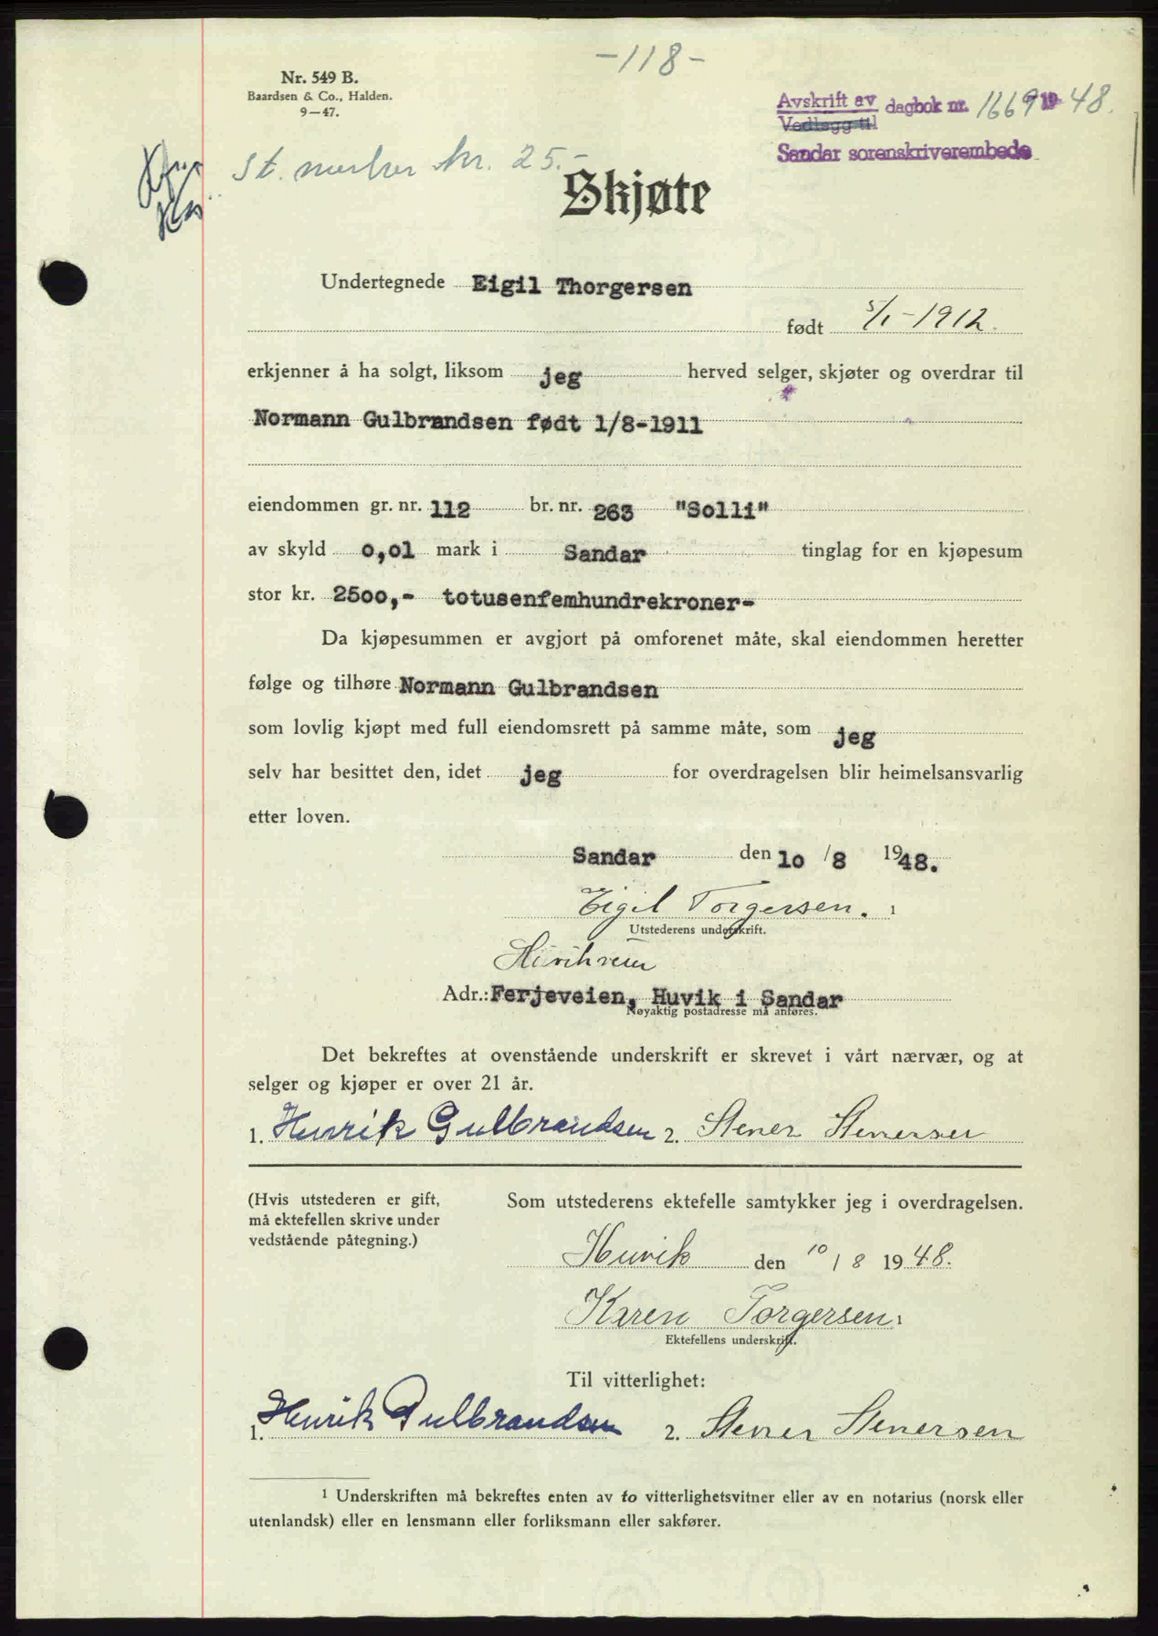 -118-
Nr. 549 B.
Baardsen & Co., Halden.
9—47.
Avskrift av dagbok nr. 1669 1948.
Vedlegg til
Sandar sorenskriverembede
St. merker kr. 25.-
Skjøte
Undertegnede Eigil Thorgersen
født 5/1-1912.
erkjenner å ha solgt, liksom jeg herved selger, skjøter og overdrar til
Normann Gulbrandsen født 1/8-1911
eiendommen gr. nr. 112 br. nr. 263 "Solli"
av skyld 0,01 mark i Sandar tinglag for en kjøpesum
stor kr. 2500,- totusenfemhundrekroner-
Da kjøpesummen er avgjort på omforenet måte, skal eiendommen heretter
følge og tilhøre Normann Gulbrandsen
som lovlig kjøpt med full eiendomsrett på samme måte, som jeg
selv har besittet den, idet jeg for overdragelsen blir heimelsansvarlig
etter loven.
Sandar den 10 /8 1948.
Eigil Torgersen. 1
Utstederens underskrift.
Adr.: Ferjeveien, Huvik i Sandar
Nøyaktig postadresse må anføres.
Det bekreftes at ovenstående underskrift er skrevet i vårt nærvær, og at
selger og kjøper er over 21 år.
1. Henrik Gulbrandsen 2. Stener Stenersen
(Hvis utstederen er gift, Som utstederens ektefelle samtykker jeg i overdragelsen.
må ektefellen skrive under
vedstående påtegning.)
Huvik den 10/8 1948.
Karen Torgersen 1
Ektefellens underskrift.
Til vitterlighet:
1. Henrik Gulbrandsen 2. Stener Stenersen
1 Underskriften må bekreftes enten av to vitterlighetsvitner eller av en notarius (norsk eller
utenlandsk) eller en lensmann eller forliksmann eller sakfører.